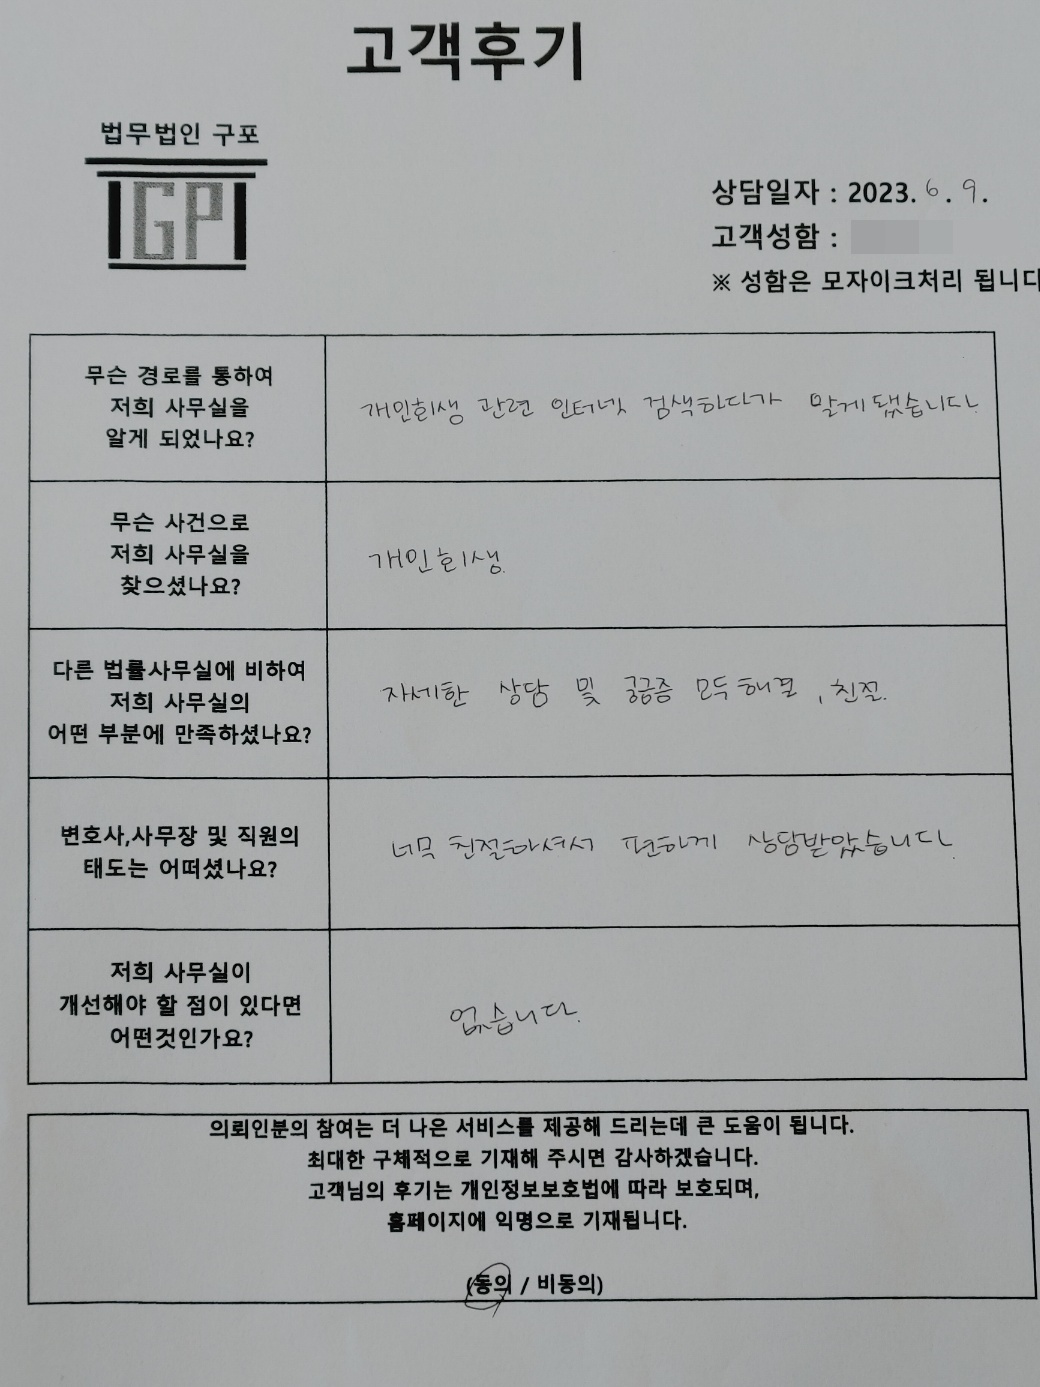 고객후기
법무법인 구포
GP
상담일자 : 2023. 6. 9.
고객성함 :
※ 성함은 모자이크처리 됩니다
무슨 경로를 통하여
저희 사무실을
알게 되었나요?
개인회생 관련 인터넷 검색하다가 알게됐습니다.
무슨 사건으로
저희 사무실을
찾으셨나요?
개인회생.
다른 법률사무실에 비하여
저희 사무실의
어떤 부분에 만족하셨나요?
자세한 상담 및 궁금증 모두해결, 친절.
변호사,사무장 및 직원의
태도는 어떠셨나요?
너무 친절하셔서 편하게 상담받았습니다.
저희 사무실이
개선해야 할 점이 있다면
어떤것인가요?
없습니다.
의뢰인분의 참여는 더 나은 서비스를 제공해 드리는데 큰 도움이 됩니다.
최대한 구체적으로 기재해 주시면 감사하겠습니다.
고객님의 후기는 개인정보보호법에 따라 보호되며,
홈페이지에 익명으로 기재됩니다.
(동의 / 비동의)